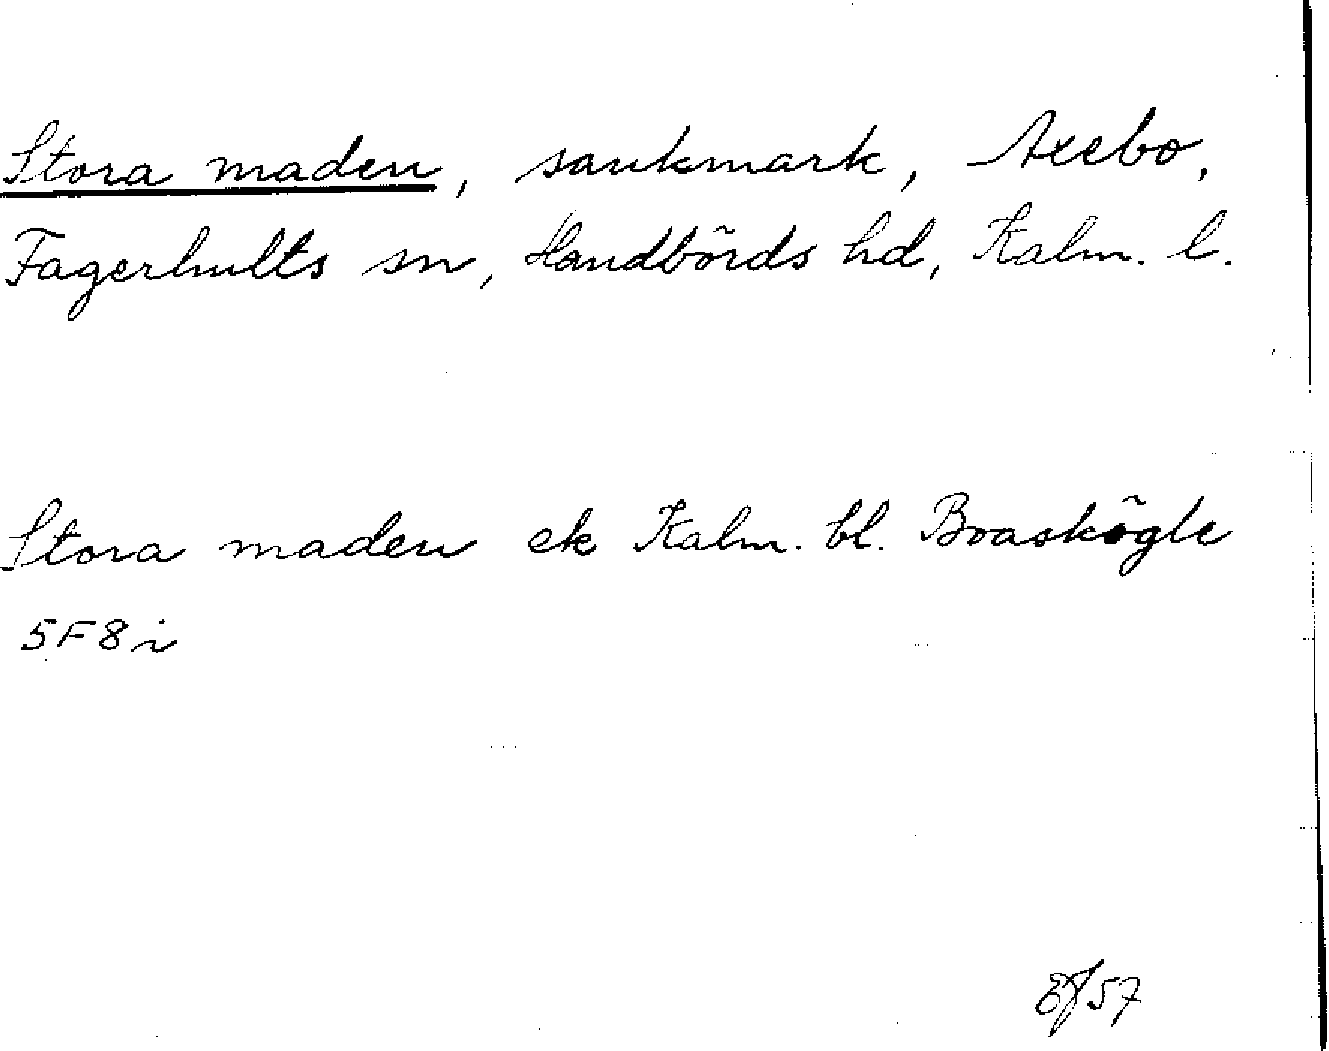 Stora maden, sankmark, Axebo,
Fagerhults sn, Handbörds hd, Kalm. l.
Stora maden ek Kalm. bl. Boaskögle
5F8i
57